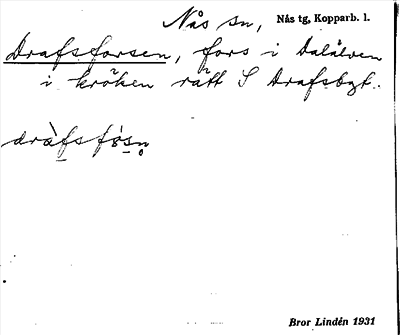 Nås sn, Nås tg, Kopparb. l.
Drafsforsen, fors i Dalälven
i kröken rätt S Drafsbgt.
dràfsfo̱sn̥
Bror Lindén 1931